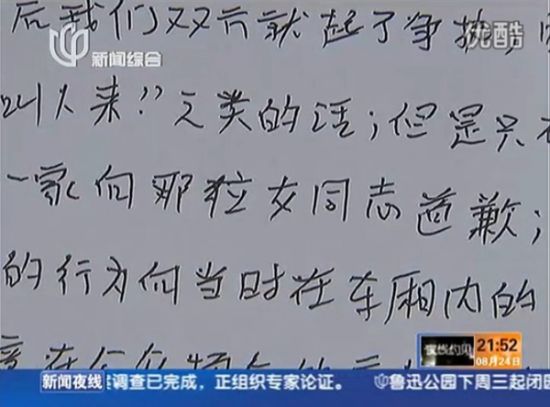 后我们双方就起了争执，
新闻综合
优酷
叫人来”之类的话；但是只
一家向那位女同志道歉；
的行为向当时在车厢内的
夜线约见
21:52
08月24日
新闻夜线
调查已完成，正组织专家论证。
鲁迅公园下周三起闭园